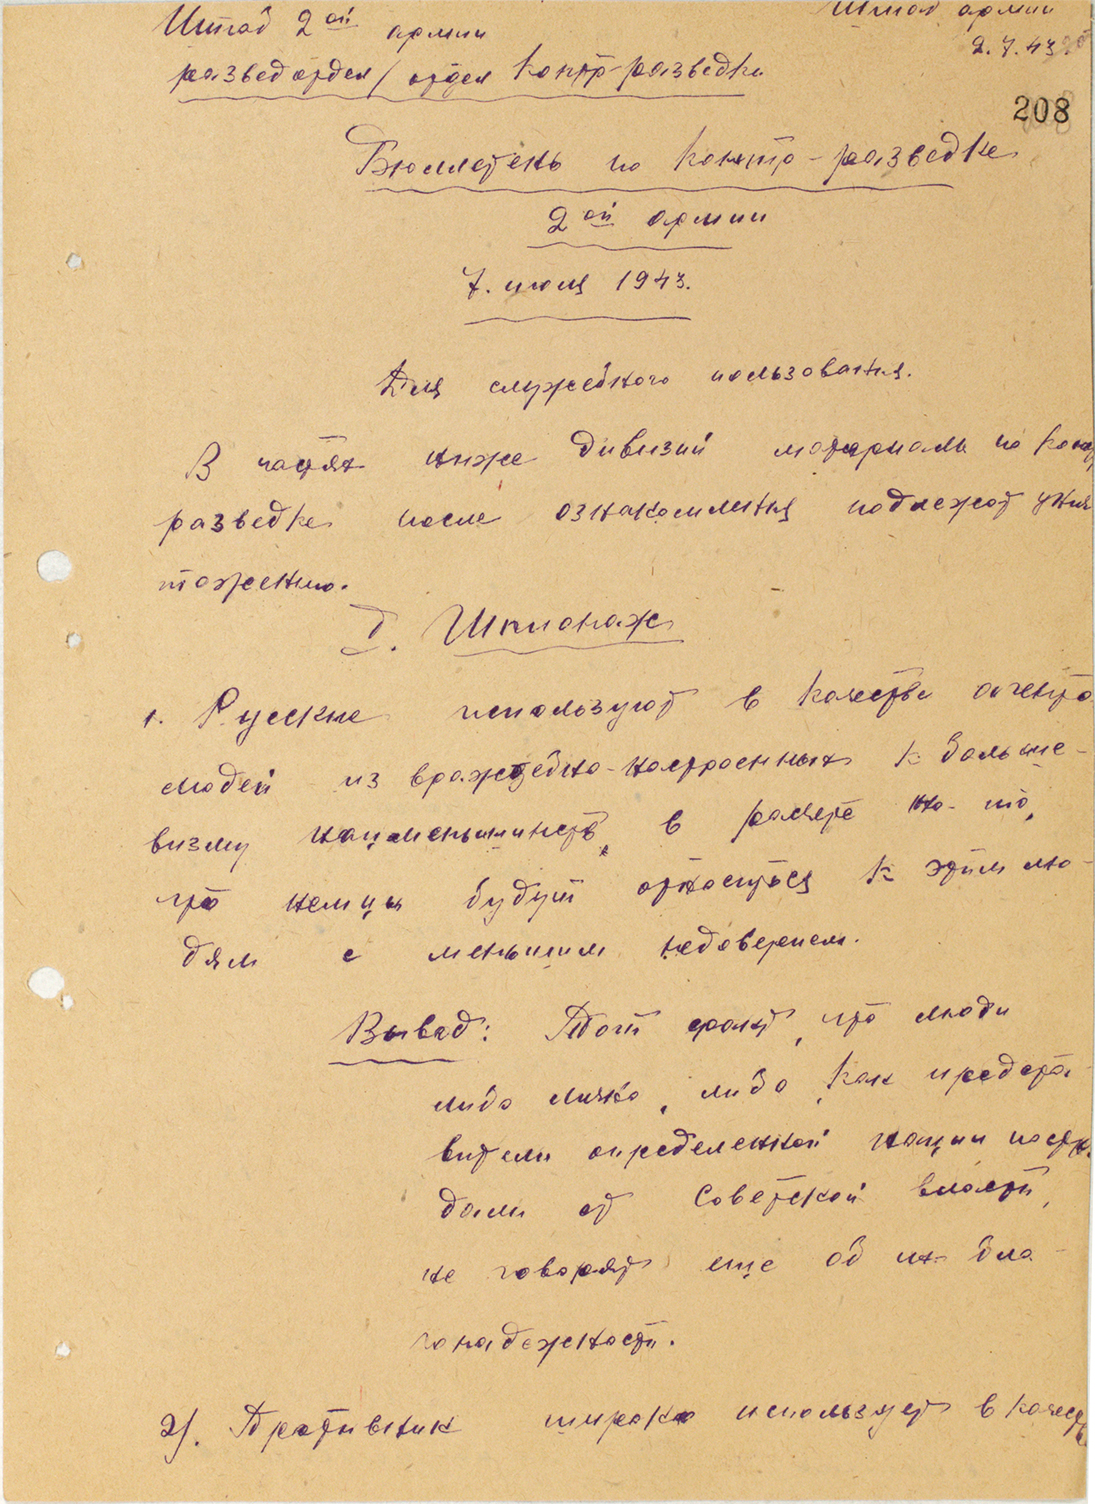 Штаб 2ой армии
Штаб армии
2.7.43
разведотдел/отдел контр-разведки
208
Бюллетень по контр-разведке
2ой армии
7. июля 1943.
Для служебного пользования.
В частях ниже дивизий материалы по контр
разведке после ознакомления подлежат унич
тожению.
Шпионаж
1. Русские используют в качестве агентов
людей из враждебно-настроенных к больше-
визму нацменьшинств, в расчете на то,
что немцы будут относиться к этим лю-
дям с меньшим недоверием.
Вывод: Тот факт, что люди
либо лично, либо как предста-
вители определенной нации постра
дали от Советской власти,
не говорят еще об их бла-
гонадежности.
2/. Противник широко использует в качестве